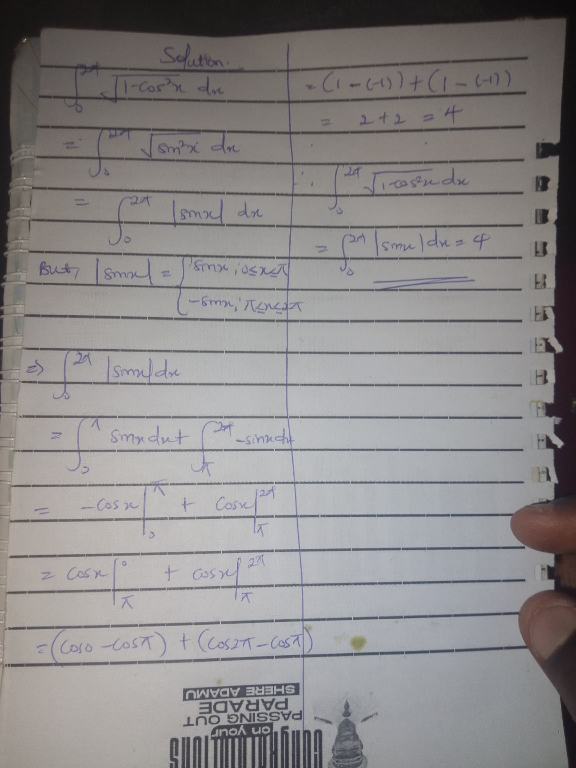 Solution.
∫₀^2π √1-cos²x dx
= ∫₀^2π √sin²x dx
= ∫₀^2π |sinx| dx
But, |sinx| = { sinx, 0≤x≤π
{ -sinx, π≤x≤2π
⇒ ∫₀^2π |sinx| dx
= ∫₀^π sinx dx + ∫_π^2π -sinx dx
= -cosx |₀^π + cosx |_π^2π
= cosx |_π^0 + cosx |_π^2π
= (cos0 - cosπ) + (cos2π - cosπ)
= (1 - (-1)) + (1 - (-1))
= 2 + 2 = 4
∴ ∫₀^2π √1-cos²x dx
= ∫₀^2π |sinx| dx = 4
CONGRATULATIONS
on your
PASSING OUT
PARADE
SHERE ADAMU